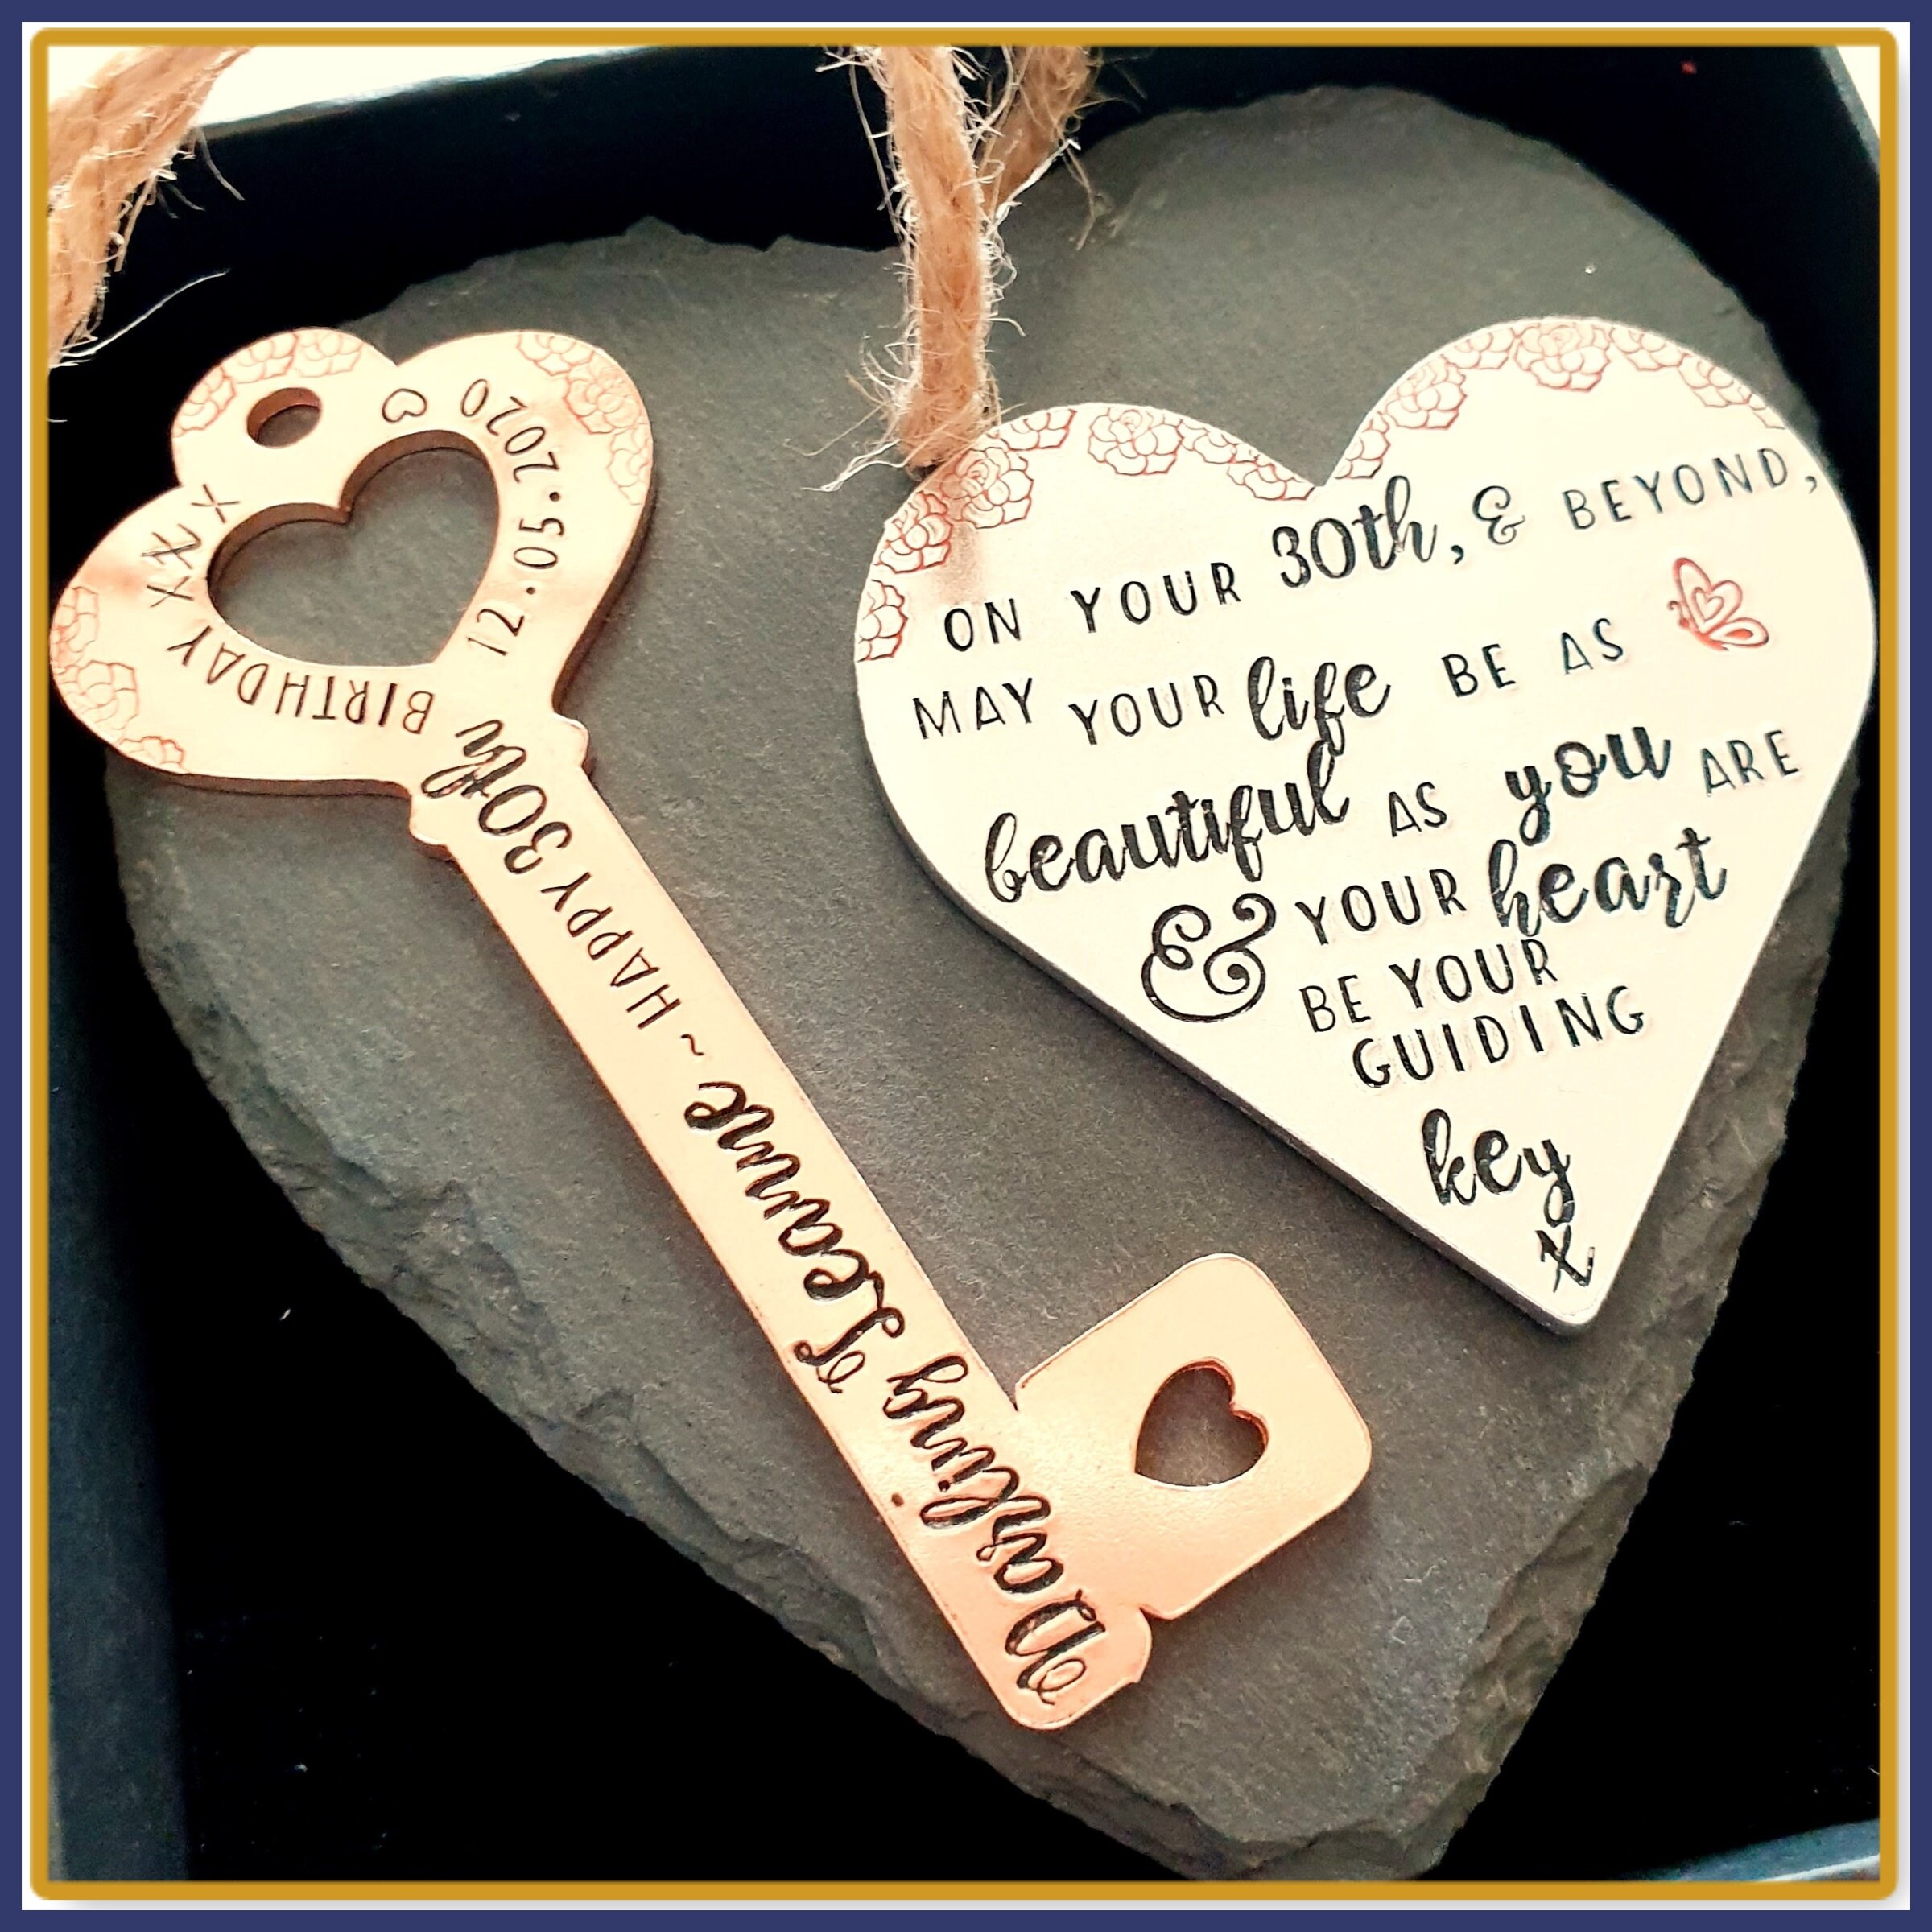 Darling Leanne ~ HAPPY 30th
BIRTHDAY XXX
12.05.2020
ON YOUR 30th, & BEYOND,
MAY YOUR life BE AS
beautiful AS you ARE
& YOUR heart
BE YOUR
GUIDING
key
x